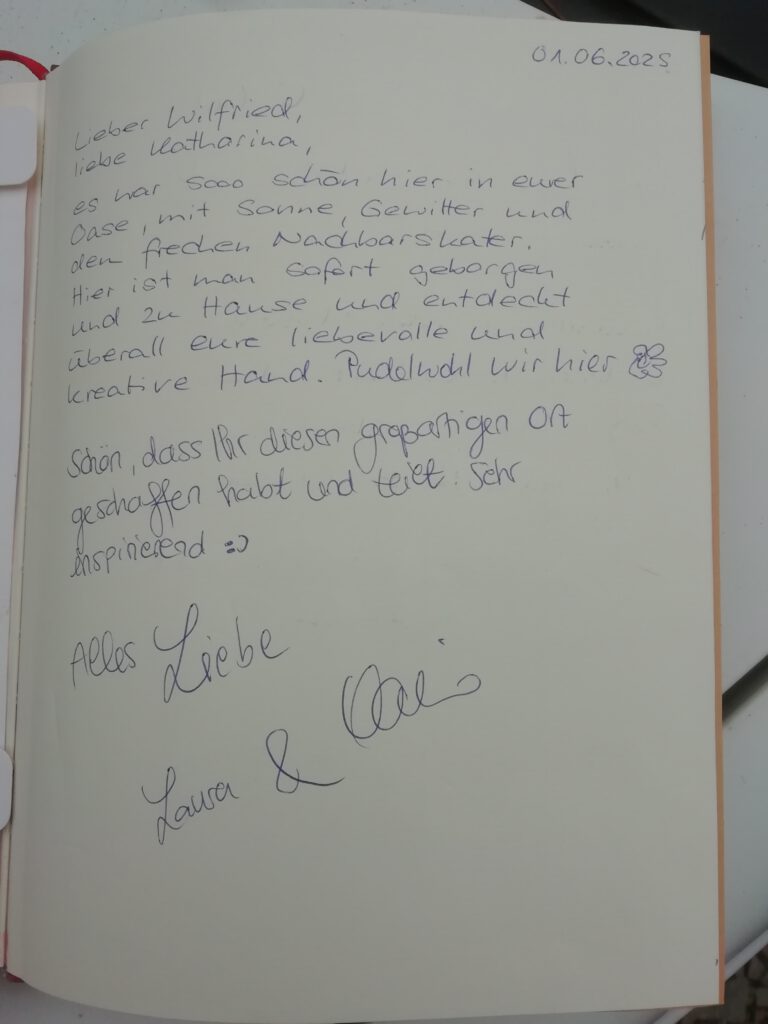 01.06.2025
Lieber Wilfried,
liebe Katharina,
es war sooo schön hier in eurer
Oase, mit Sonne, Gewitter und
dem frechen Nachbarskater.
Hier ist man sofort geborgen
und zu Hause und entdeckt
überall eure liebevolle und
kreative Hand. Pudelwohl wir hier
Schön, dass Ihr diesen großartigen Ort
geschaffen habt und teilt. Sehr
inspirierend :)
Alles Liebe
Laura &